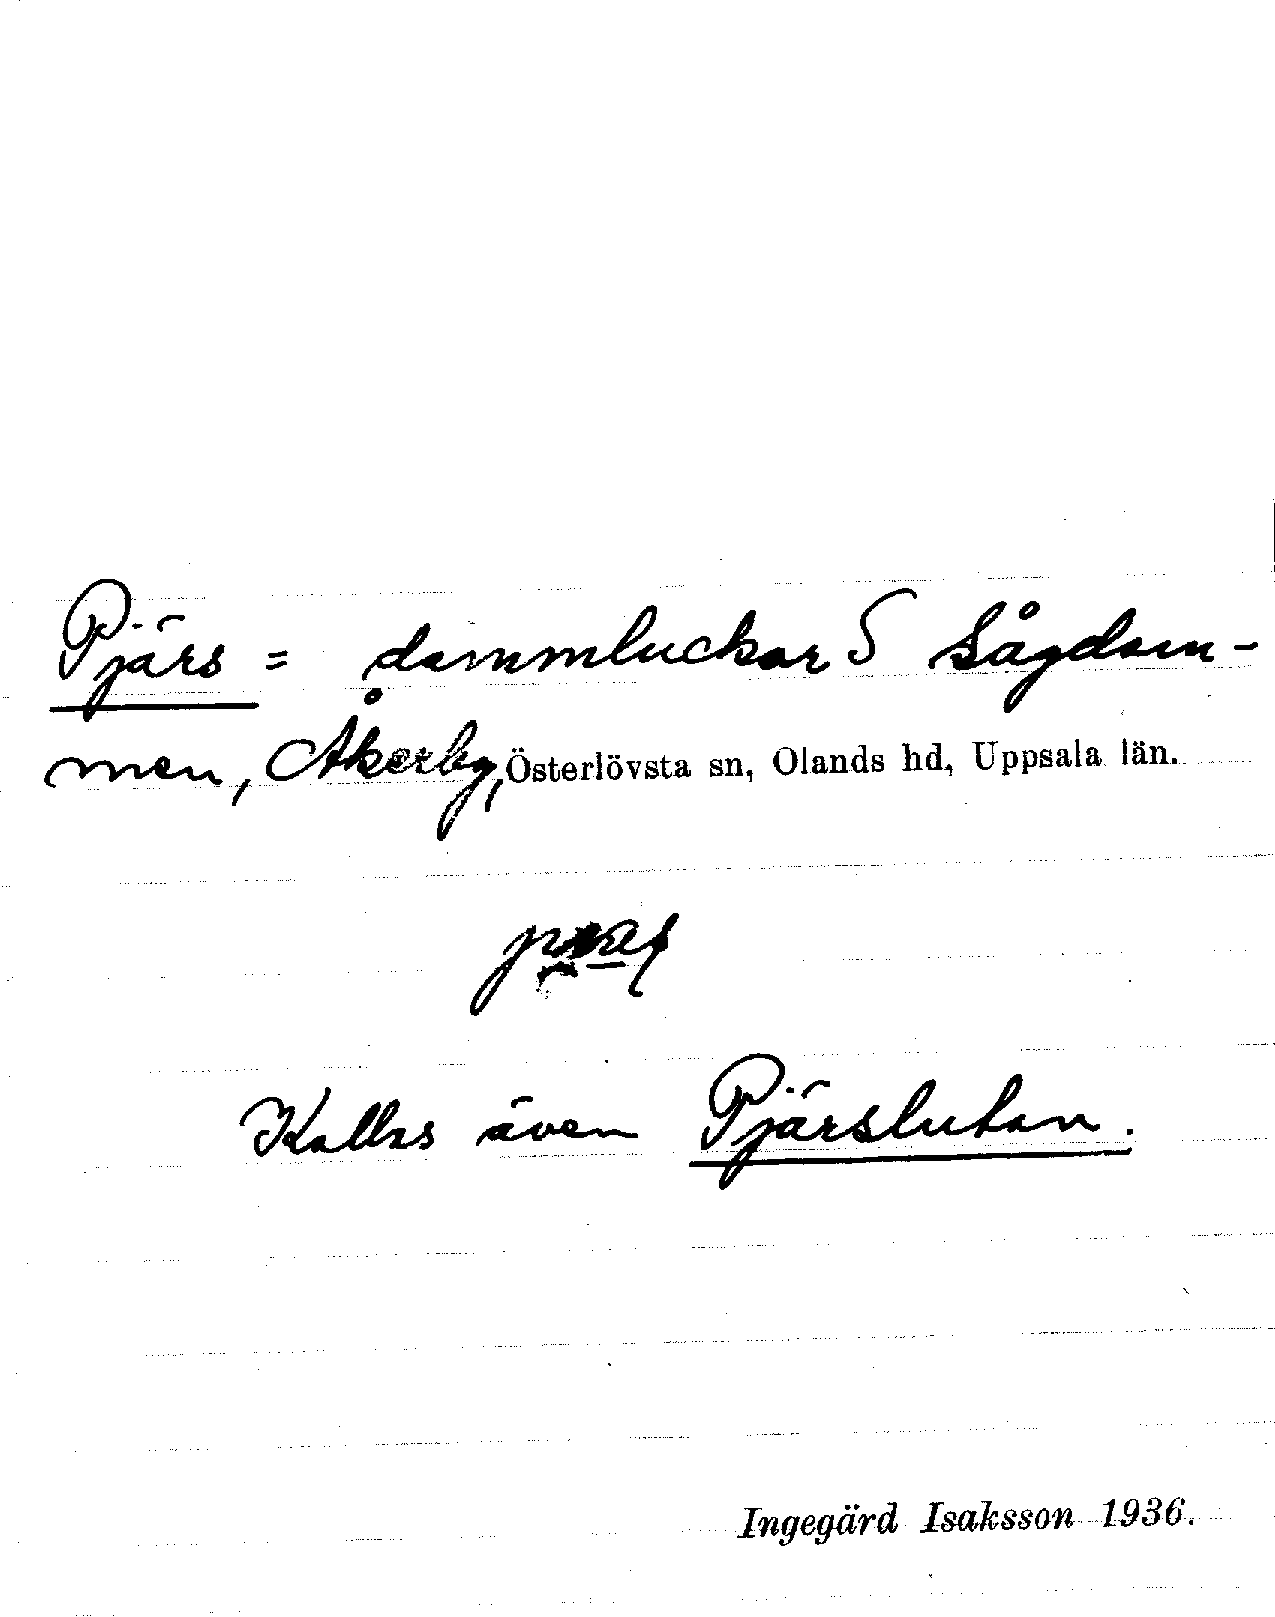 Pjärs = dammluckor S Sågdam-
men, Åkerby, Österlövsta sn, Olands hd, Uppsala län.
Kallas även Pjärslutan.
Ingegärd Isaksson 1936.